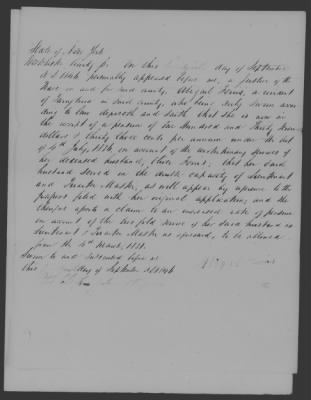 State of New York
County ss. On this day of September
A.D. 1846 personally appeared before me, a Justice of the
Peace in and for said county, Abigail a resident
of in said county, who being duly sworn
to law deposeth and saith that she is now in
the receipt of a pension of One Hundred and Thirty
dollars & thirty three cents per annum under the act
of 4th July, 1836, on account of the revolutionary services of
her deceased husband, that her said
husband served in the double capacity of Lieutenant
and Quarter Master, as will appear by reference to the
papers filed with her original application; and she
therefore asserts a claim to an increased rate of pension
on account of the two fold service of her said husband as
Lieutenant & Quarter Master as aforesaid, to be allowed
from the 4th March,
Sworn to and subscribed before me
this day of September A.D. 1846